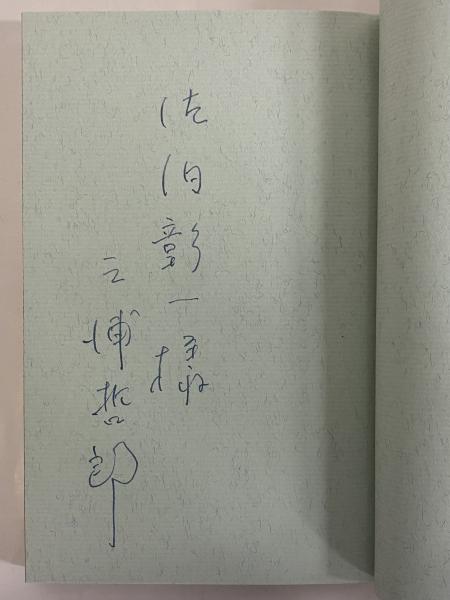 佐伯彰一様
三浦哲郎